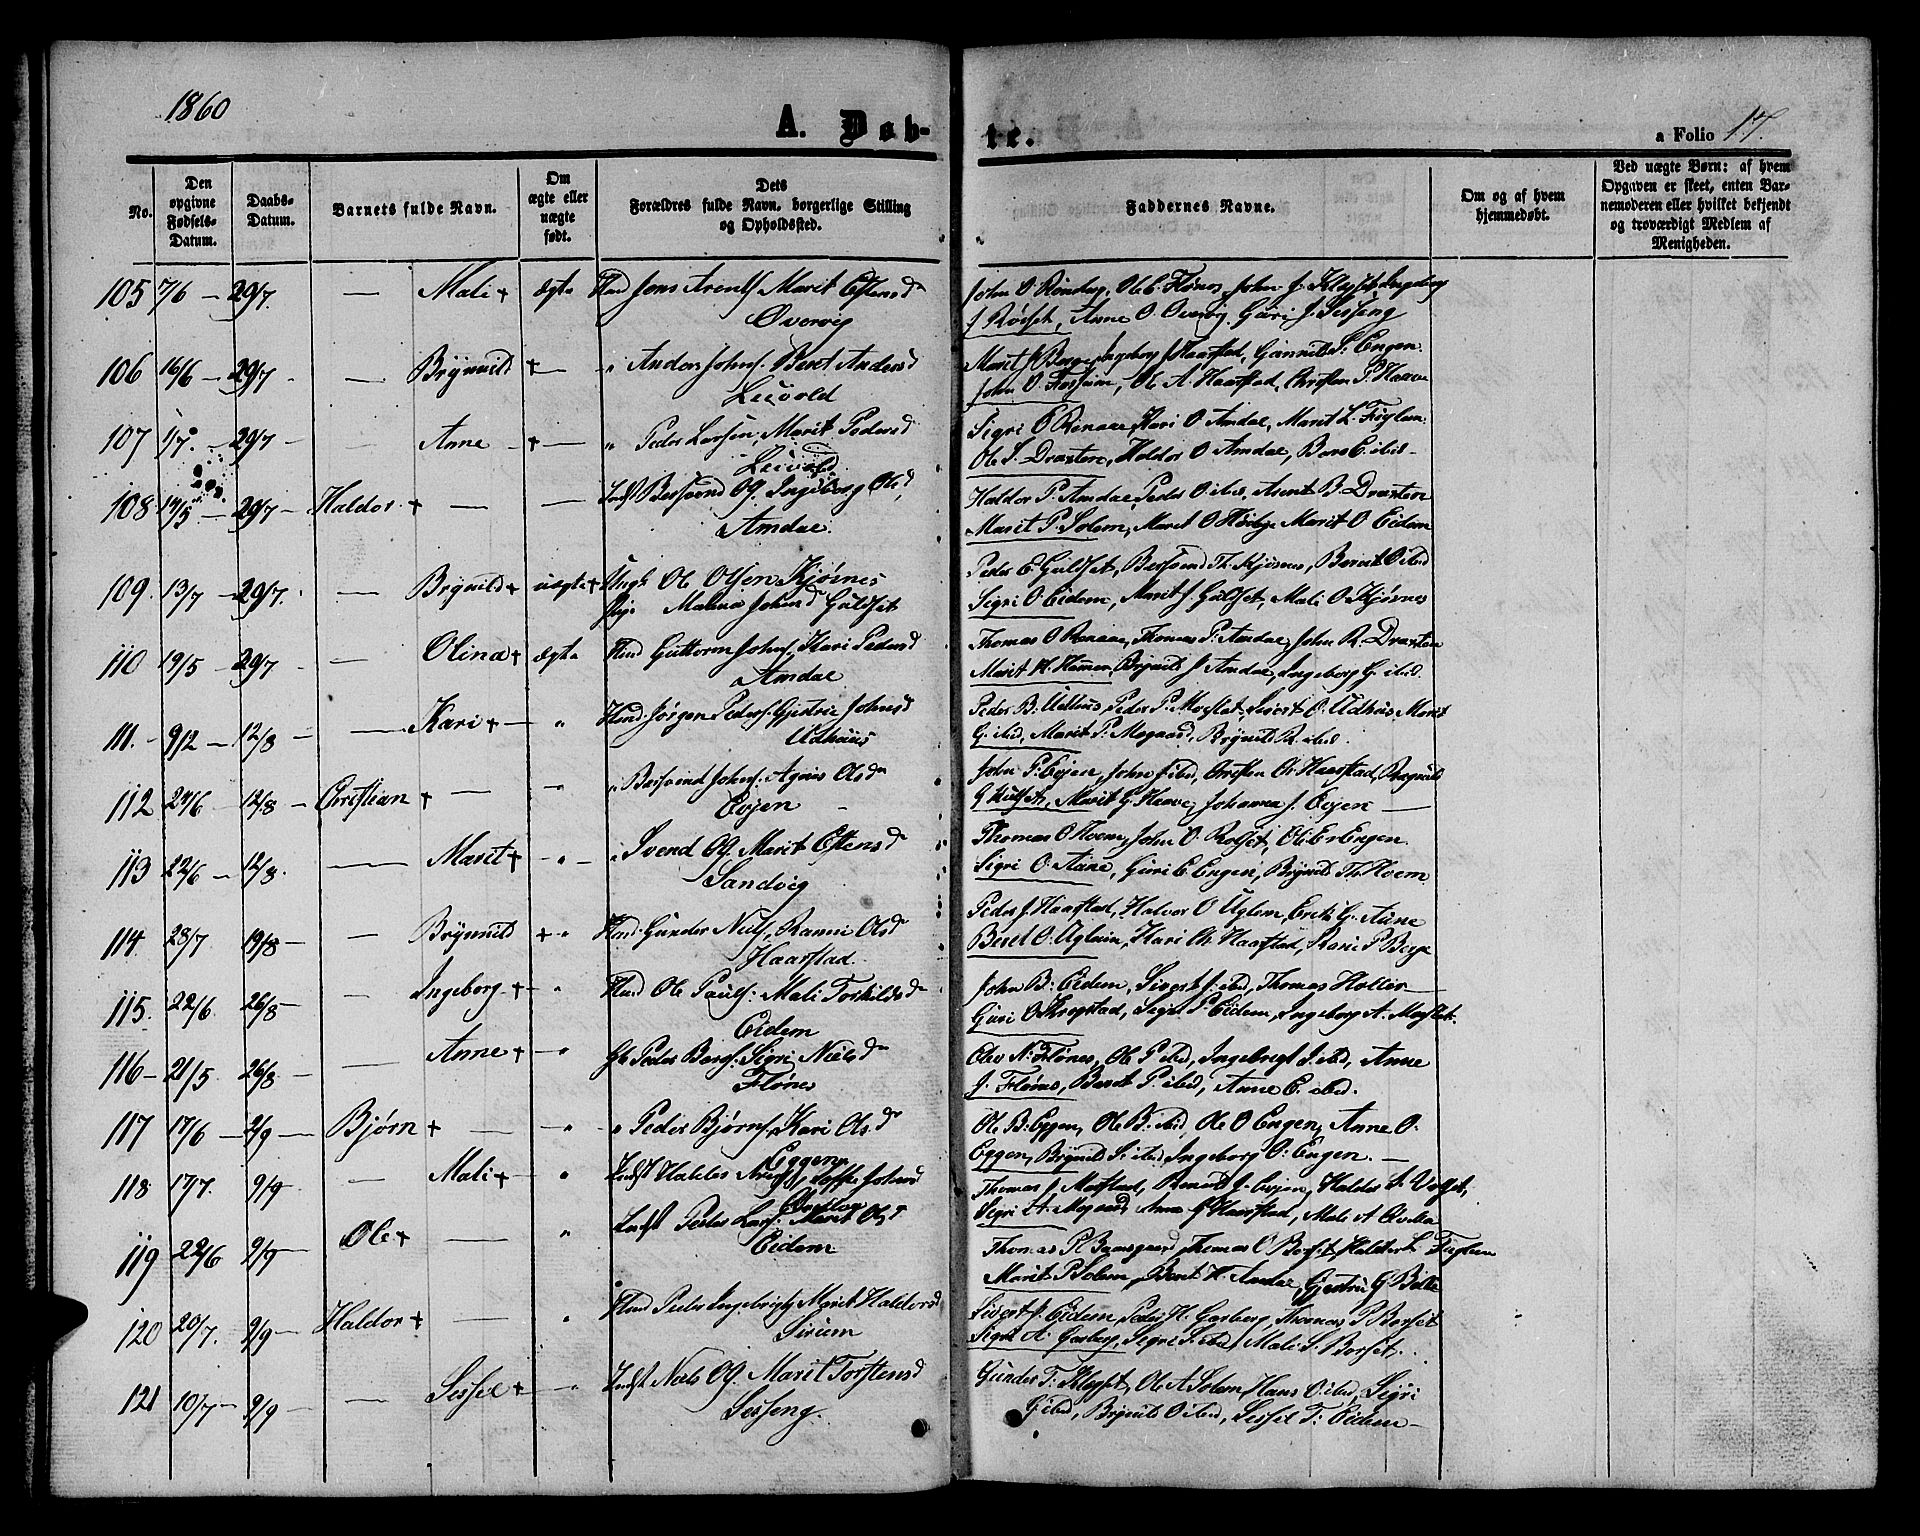 1860
A. Døb-
te.
a Folio 17.
No.
Den opgivne Fødsels-Datum.
Daabs-Datum.
Barnets fulde Navn.
Om ægte eller uægte født.
Dets Forældres fulde Navn, borgerlige Stilling og Opholdssted.
Faddernes Navne.
Om og af hvem hjemmedøbt.
Ved uægte Børn: af hvem Opgaven er skeet, enten Barnemoderen eller hvilket bekjendt og troværdigt Medlem af Menigheden.
105 7/6 — 29/7. — Mali + ægte Hmd Jens Arentss. Marit Estensd
Overvig
John O. Rønsberg, Ole E. Flønes, John J. Ingeborg
J. Røsset, Anne O. Overvig, Guri J. Sesseng
106 16/6 — 29/7 — Brynild + — " Anders Johns. Beret Andersd
Leivold
Marit J. Berge, Ingeborg J. Haarstad, Gunnild S. Engen.
John O. Fossum, Ole A. Haarstad, Christen P. Haave
107 1/7 — 29/7 — Anne + — " Peder Larsen, Marit Pedersd
Leivold
Sigri E. Renaae, Kari O. Amdae, Marit L. Fuglem
Ole I. Draxten, Haldor O. Amdae, Bero E. ibid
108 14/5 — 29/7 — Haldor + — — Indst Bersvend Og. Ingeborg Olsd,
Amdae.
Haldor P. Amdae, Peder O. ibid, Arent B. Draxten
Marit P. Solem, Marit O. Marit O Eidem
109. 13/7 — 29/7. — Brynild + uægte + Ungk Ole Olsen Kjøsnes
Pige Malena Johnsd Guldset
Peder E. Guldset, Bersvend Th. Kjøsnes, Beret O. ibid
Sigri O Eidem, Marit J. Guldset, Mali O. Kjøsnes
110 19/5 — 29/7 — Olina + ægte Hmd Guttorm Johns, Kari Pedersd
Amdae
Thomas O Renaae, Thomas P. Amdae, John R. Draxten
Marit H. Hammer, Brynild J. Amdae, Ingeborg G. ibid.
111. — 9/2 — 12/8 — Kari + — " Hmd Jørgen Peders. Gjertrue Johnsd
Udhuus
Peder B. Udhuus, Peder P. Mogstad, Sivert O. Udhus, Marit
G. ibid, Marit P. Mogaard, Brynild R. ibid.
112 24/6 — 12/8 — Christian + — — " " Bersvend Johns. Agnes Olsd
Evjen —
John P. Evjen, John ibid, Christen Ch. Haarstad, Ragnild
G Kulset, Marit G. Haave, Johanna J. Evjen —
113 22/6 — 12/8. — Marit + — " — " Svend Og. Marit Estensd
Sandvig
Thomas O Hvem, John O. Rolset, Ole Er Engen.
Sigri O. Aune, Guri E. Engen, Brynild Th. Hvem.
114 28/7 19/8 — — Brynnild + " Hmd. Gunder Niels, Ranni Olsd
Haarstad.
Peder J. Haarstad, Halvor O Uglem, Erik G. Aune
Beret O. Uglem, Kari Ch. Haarstad, Rani P. Berge
115. 22/6. 26/8 — — Ingeborg + — " Hmd Ole Pauls: Mali Torkildsd
Eidem
John B: Eidem, Sivert J. ibid, Thomas Holter —
Guri O. Krogstad, Sigri P. Eidem, Ingeborg A. Mogstad
116 — 21/5 26/8 — Anne + — " Gb. Peder Bers. Sigri Nielsd
Flønes
Elev N. Flønes, Ole P. ibid, Ingebregt J. ibid, Anne
J. Flønes, Beret P. ibid, Anne E. ibid.
117 17/6 — 2/9 — Bjørn + — — " " Peder Bjørns. Kari Olsd
Eggen
Ole B. Eggen, Ole B. ibid, Ole O Engen, Anne O.
Eggen, Brynild S. ibid, Ingeborg O. Engen. —
118 17/7. 9/9 — — Mali + — " Indst Haldor Johnsd
Thomas J. Mogstad, J. Evjen, Haldor S.
Sigri A. Mogaard, Anne G Haarstad, Mali A.
119 22/6 9/9 — Ole + — " Indst Peder Lars. Marit Olsd
Eidem
Thomas P. Thomas O Borset, Haldor L Fuglem
Marit P. Solem, Beret H. Amdae, Gjertru G
120 20/7. 9/9 — Haldor + — " Hmd Peder Ingebrigts Marit Haldorsd
Sirum
Sivert J. Eidem, Peder H. Garberg, Thomas P Borset
Sigri A. Garberg, Sigri I. ibid, Mali S. Borset.
121 10/7 — 9/9 — Sessel + — " Indst Niels Og. Marit Torstensd
Sesseng.
Gunder T. Klepset, Ole A Solem, Hans O. ibid, Sigri
ibid, Brynild O. ibid, Sessel T. Eidem —